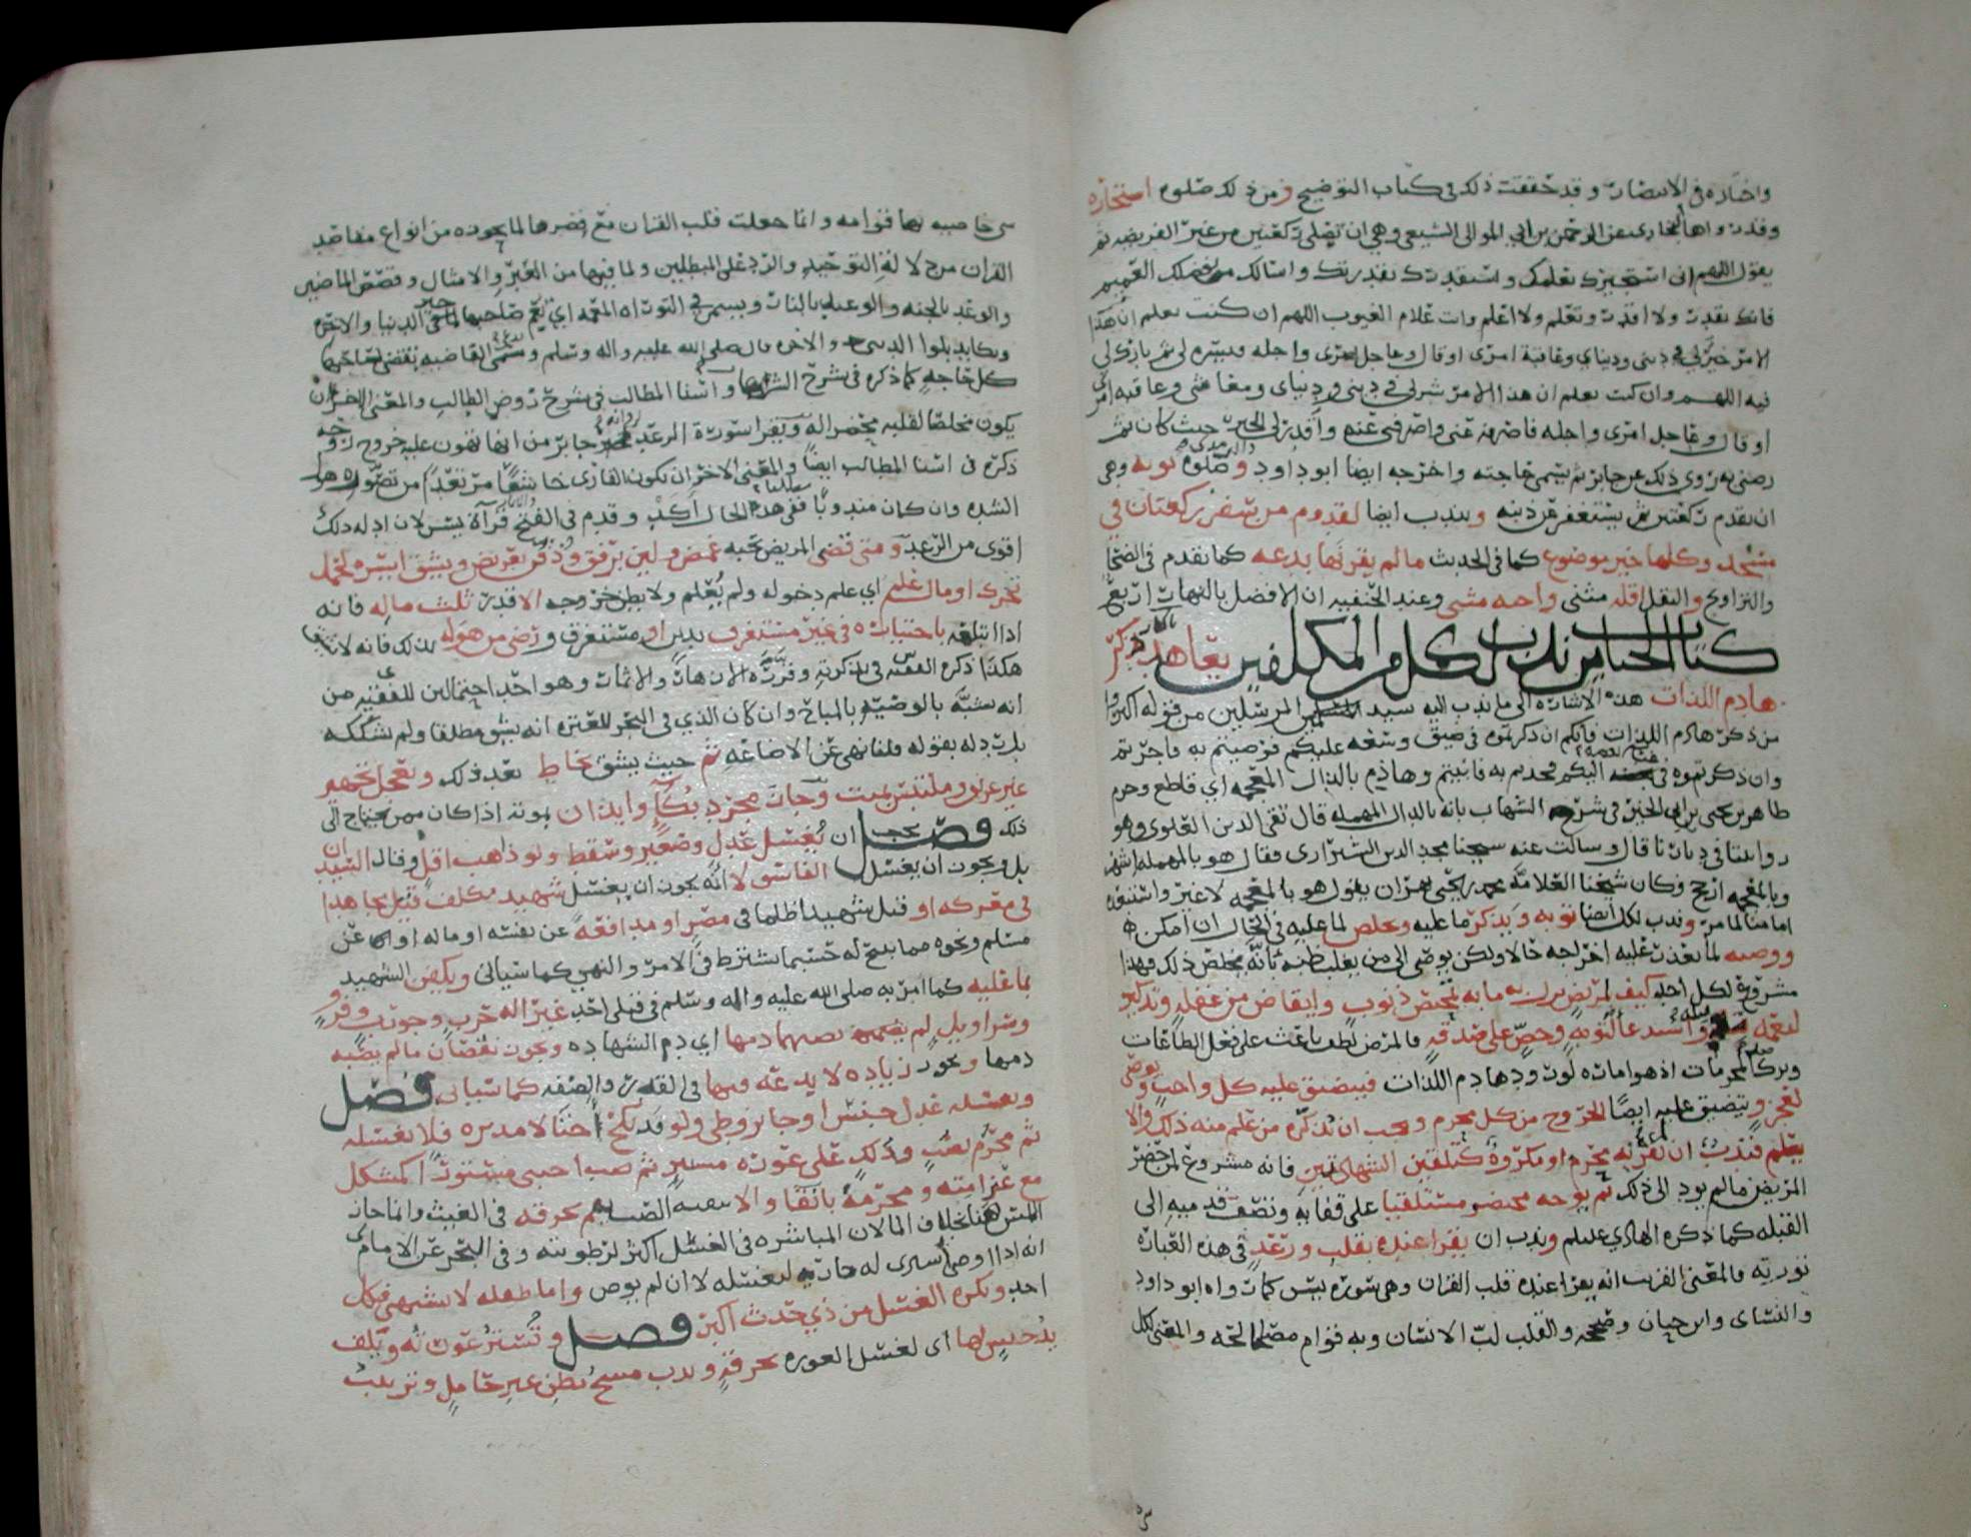 واختاره في الانتصار وقد حققت ذلك في كتاب التوضيح ومن ذلك صلوه استخاره
وقد رواها البخاري عن الرحمن بن ابي الموالي وهي ان تصلي ركعتين من غير الفريضه ثم
يقول اللهم اني استخيرك بعلمك واستقدرك بقدرتك واسالك من فضلك العميم
فانك تقدر ولا اقدر وتعلم ولا اعلم وانت علام الغيوب اللهم ان كنت تعلم ان هذا
الامر خير لي في ديني ودنياي وعاقبة امري او قال وعاجل امري واجله ويسره لي ثم بارك لي
فيه اللهم وان كنت تعلم ان هذا الامر شر لي في ديني ودنياي ومعاشي وعاقبه امري
او قال وعاجل امري واجله فاصرفه عني واصرفني عنه واقدر لي الخير حيث كان ثم
رضني به روى ذلك عن جابر ثم يسمي حاجته واخرجه ايضا ابو داود وصلوه توبه وهي
ان يقدم ركعتين ثم يستغفر من ذنبه ويندب ايضا لقدوم من سفر ركعتان في
مسجد وكلها خير موضوع كما في الحديث ما لم يقرنها بدعه كما تقدم في الضحا
والتراويح والنفل اقله مثنى واحبه مثنى وعند الحنفيه ان الافضل بالنهار اربع
كتاب الجنايز ندب لكل من المكلفين تعاهد ذكر
هادم اللذات هذه الاشاره الى ما ندب اليه سيد المرسلين من قوله اكثروا
من ذكر هادم اللذات فانكم ان ذكرتموه في ضيق وسعه عليكم فرضيتم به فاجرتم
وان ذكرتموه في اليكم فجدتم به فاثبتم وهاذم بالذال المعجمه اي قاطع وجزم
طاهر بن يحيى بن ابي الخير في شرح الشهاب بانه بالدال المهمله قال تقي الدين العلوي وهو
روايتنا في ديارنا قال وسالت عنه شيخنا مجد الدين الشيرازي فقال هو بالمهمله اشهر
وبالمعجمه ارجح وكان شيخنا العلامه محمد بن يحيى بهران يقول هو بالمعجمه لا غير
امامنا لما مر وندب لكل ايضا توبه وبذكر ما عليه وتخلص لما عليه في الحال ان امكن
ووصيه لما تعذر عليه اخراجه حالا ولكن يوصي الى من يغلب بظنه بانه يخلص ذلك فهذا
مشروع لكل احد كيف لمريض به ما به تمحيص ذنوب وايقاض من غفله وتذكير
لنعمه واستدعا لتوبه وحص على صدقه فالمرض لطف باعث على فعل الطاعات
وترك المحرمات اذ هو اماره لورود هادم اللذات فيضيق عليه كل واجب ويوصي
لعجز ويتضيق عليه ايضا الخروج من كل محرم ويجب ان يذكره من علم منه ذلك والا
يعلم فندب ان لم يقرنه بمحرم او مكروه كتلقين الشهادتين فانه مشروع لمن حضر
المريض ما لم يود الى ذلك ثم يوجه محتضر مستلقيا على قفا به وتصف قدميه الى
القبله كما ذكره الهادي عليلم وندب ان يقرا عنده بقلب ورعد في هذه العباره
توريه فالمعنى القريب انه يقرا عنده قلب القران وهي سورة يس كما رواه ابو داود
والنسائي وابن حبان وصححه والقلب لب الانسان وبه قوام مصالحه والمعنى لكل
شي خاصيه بها قوامه وانما جعلت قلب القران مع قصرها لما تحوزه من انواع مقاصد
القران من دلالة التوحيد والرد على المبطلين ولما فيها من العبر والامثال وقصص الماضين
والوعد بالجنه والوعيد بالنار وتسمى في التوراه المعمه اي تعم صاحبها بخير الدنيا والاخره
وتكابد بلوا الدنيا والاخره قال صلى الله عليه واله وسلم وتسمى القاضيه تقضي لصاحبها
كل حاجه كما ذكره في شرح واسنا المطالب في شرح روض الطالب والمعنى الاخر ان
يكون مخلصا لقلبه بحضر اله ويقرا سورة الرعد جابر من انها تهون عليه خروج روحه
ذكره في اسنا المطالب ايضا والمعنى الاخر ان يكون القاري خاشعا مرتعدا من تصور هول
الشده وان كان مندوبا ففي هذه الحال اكد وقدم في الفتح قراة يس لان ادله ذلك
اقوى من الرعد ومتى قضى المريض نحبه غمض ولين برفق وذقن بعريض ويشق ايسره لحمل
تحرك او مال علم اي علم دخوله ولم يعلم ولا يظن خروجه الا قدر ثلث ماله فانه
اذا ابتلعه باختياره في غير مستغرق بدين او مستغرق ورضي من هو له بذلك فانه لا يشق
هكذا ذكره الفقيه في تذكرته وقرره الازهار والاثمار وهو احد احتمالين للفقيه من
انه يشبه بالوصيه بالمباح وان كان الذي في البحر للعتره انه يشق مطلقا ولم يشككه
بل رد له بقوله قلنا نهى عن الاضاعه ثم حيث يشق يخاط بعد ذلك ويعجل تجهيز
غير غريق وملتبس بميت وجاز مجرد بكا وايذان بموته اذا كان ممن يحتاج الى
ذلك فصل يجب ان يغسل عدل وصغير وسقط ولو ذاهب اقل وقال السيد
بل ويجوز ان يغسل الفاسق لا انه يجوز ان يغسل شهيد مكلف قتل مجاهدا
في معركه او قتل شهيدا ظلما في مصر او مدافعة عن نفسه او ماله او عن
مسلم ونحوه مما يبيح له حسبما يشترط في الامر والنهي كما سيأتي ويكفن الشهيد
بما عليه كما امر به صلى الله عليه واله وسلم في قتلى احد غير اله حرب وجورب وفرو
وسراويل لم يعمهما دمها اي دم الشهاده ويجوز نقصان ما لم يصبه
دمها وتجوز زياده لا بدعه فيها في القدر والصفه كما سياتي فصل
ويغسله عدل جنسا وجايز وطي ولو قد نكح اختا لا مدبره فلا يغسله
ثم محرم بصب ودلك على عورة مستر ثم صب اجنبي مستور كمشكل
مع غرامته ومحرمه بانقا والا الصب يمم بخرقه في الغيث وانما جاز
المس هنا بخلاف الما لان المباشره في الغسل اكثر لرطوبته وفي البحر عن الامام ي
انه اذا اوصى اشترى له جاريه لغسله لا ان لم يوص واما طفله لا يشتهى فكل
احد ويكره الغسل من ذي حدث اكبر فصل وتستر عورته ويلف
يد جنس لها اي لغسل العوره بخرقه وندب مسح بطن غير حامل وترتيب